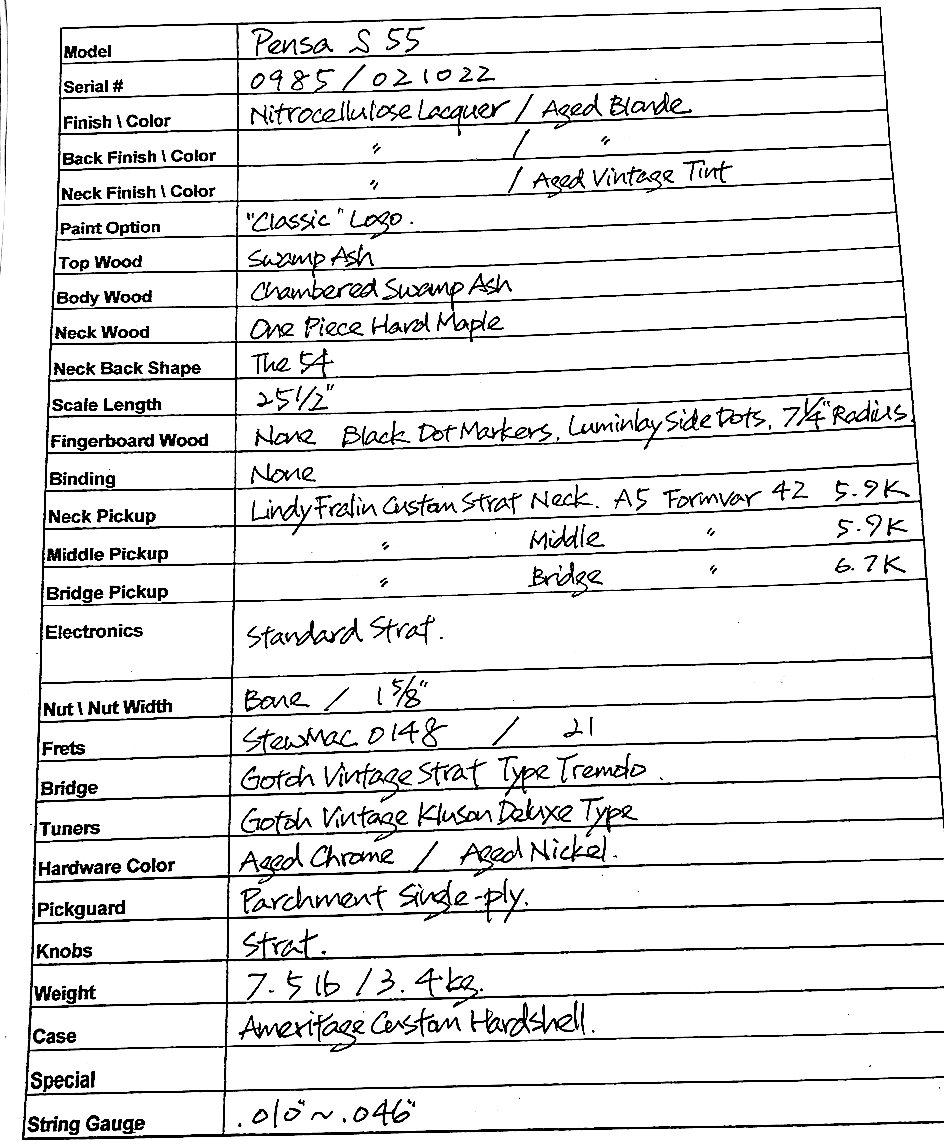 Model Pensa S 55
Serial # 0985 / 021022
Finish \ Color Nitrocellulose Lacquer / Aged Blonde
Back Finish \ Color " / "
Neck Finish \ Color " / Aged Vintage Tint
Paint Option "Classic" Logo.
Top Wood Swamp Ash
Body Wood Chambered Swamp Ash
Neck Wood One Piece Hard Maple
Neck Back Shape The 54
Scale Length 25 1/2"
Fingerboard Wood None Black Dot Markers, Luminlay Side Dots, 7 1/4" Radius
Binding None
Neck Pickup Lindy Fralin Custom Strat Neck. A5 Formvar 42 5.9K
Middle Pickup " Middle " 5.9K
Bridge Pickup " Bridge " 6.7K
Electronics Standard Strat.
Nut \ Nut Width Bone / 1 5/8"
Frets StewMac 0148 / 21
Bridge Gotoh Vintage Strat Type Tremolo.
Tuners Gotoh Vintage Kluson Deluxe Type
Hardware Color Aged Chrome / Aged Nickel.
Pickguard Parchment Single-ply.
Knobs Strat.
Weight 7.5 lb / 3.4kg.
Case Ameritage Custom Hardshell.
Special
String Gauge .010" ~ .046"